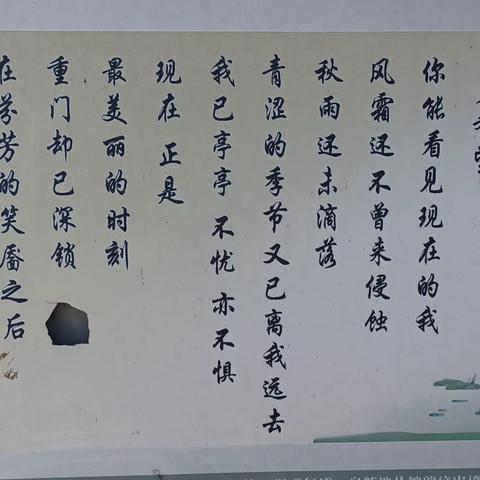 你能看见现在的我
风霜还不曾来侵蚀
秋雨还未滴落
青涩的季节又已离我远去
我已亭亭 不忧 亦不惧
现在 正是
最美丽的时刻
重门却已深锁
在芬芳的笑靥之后